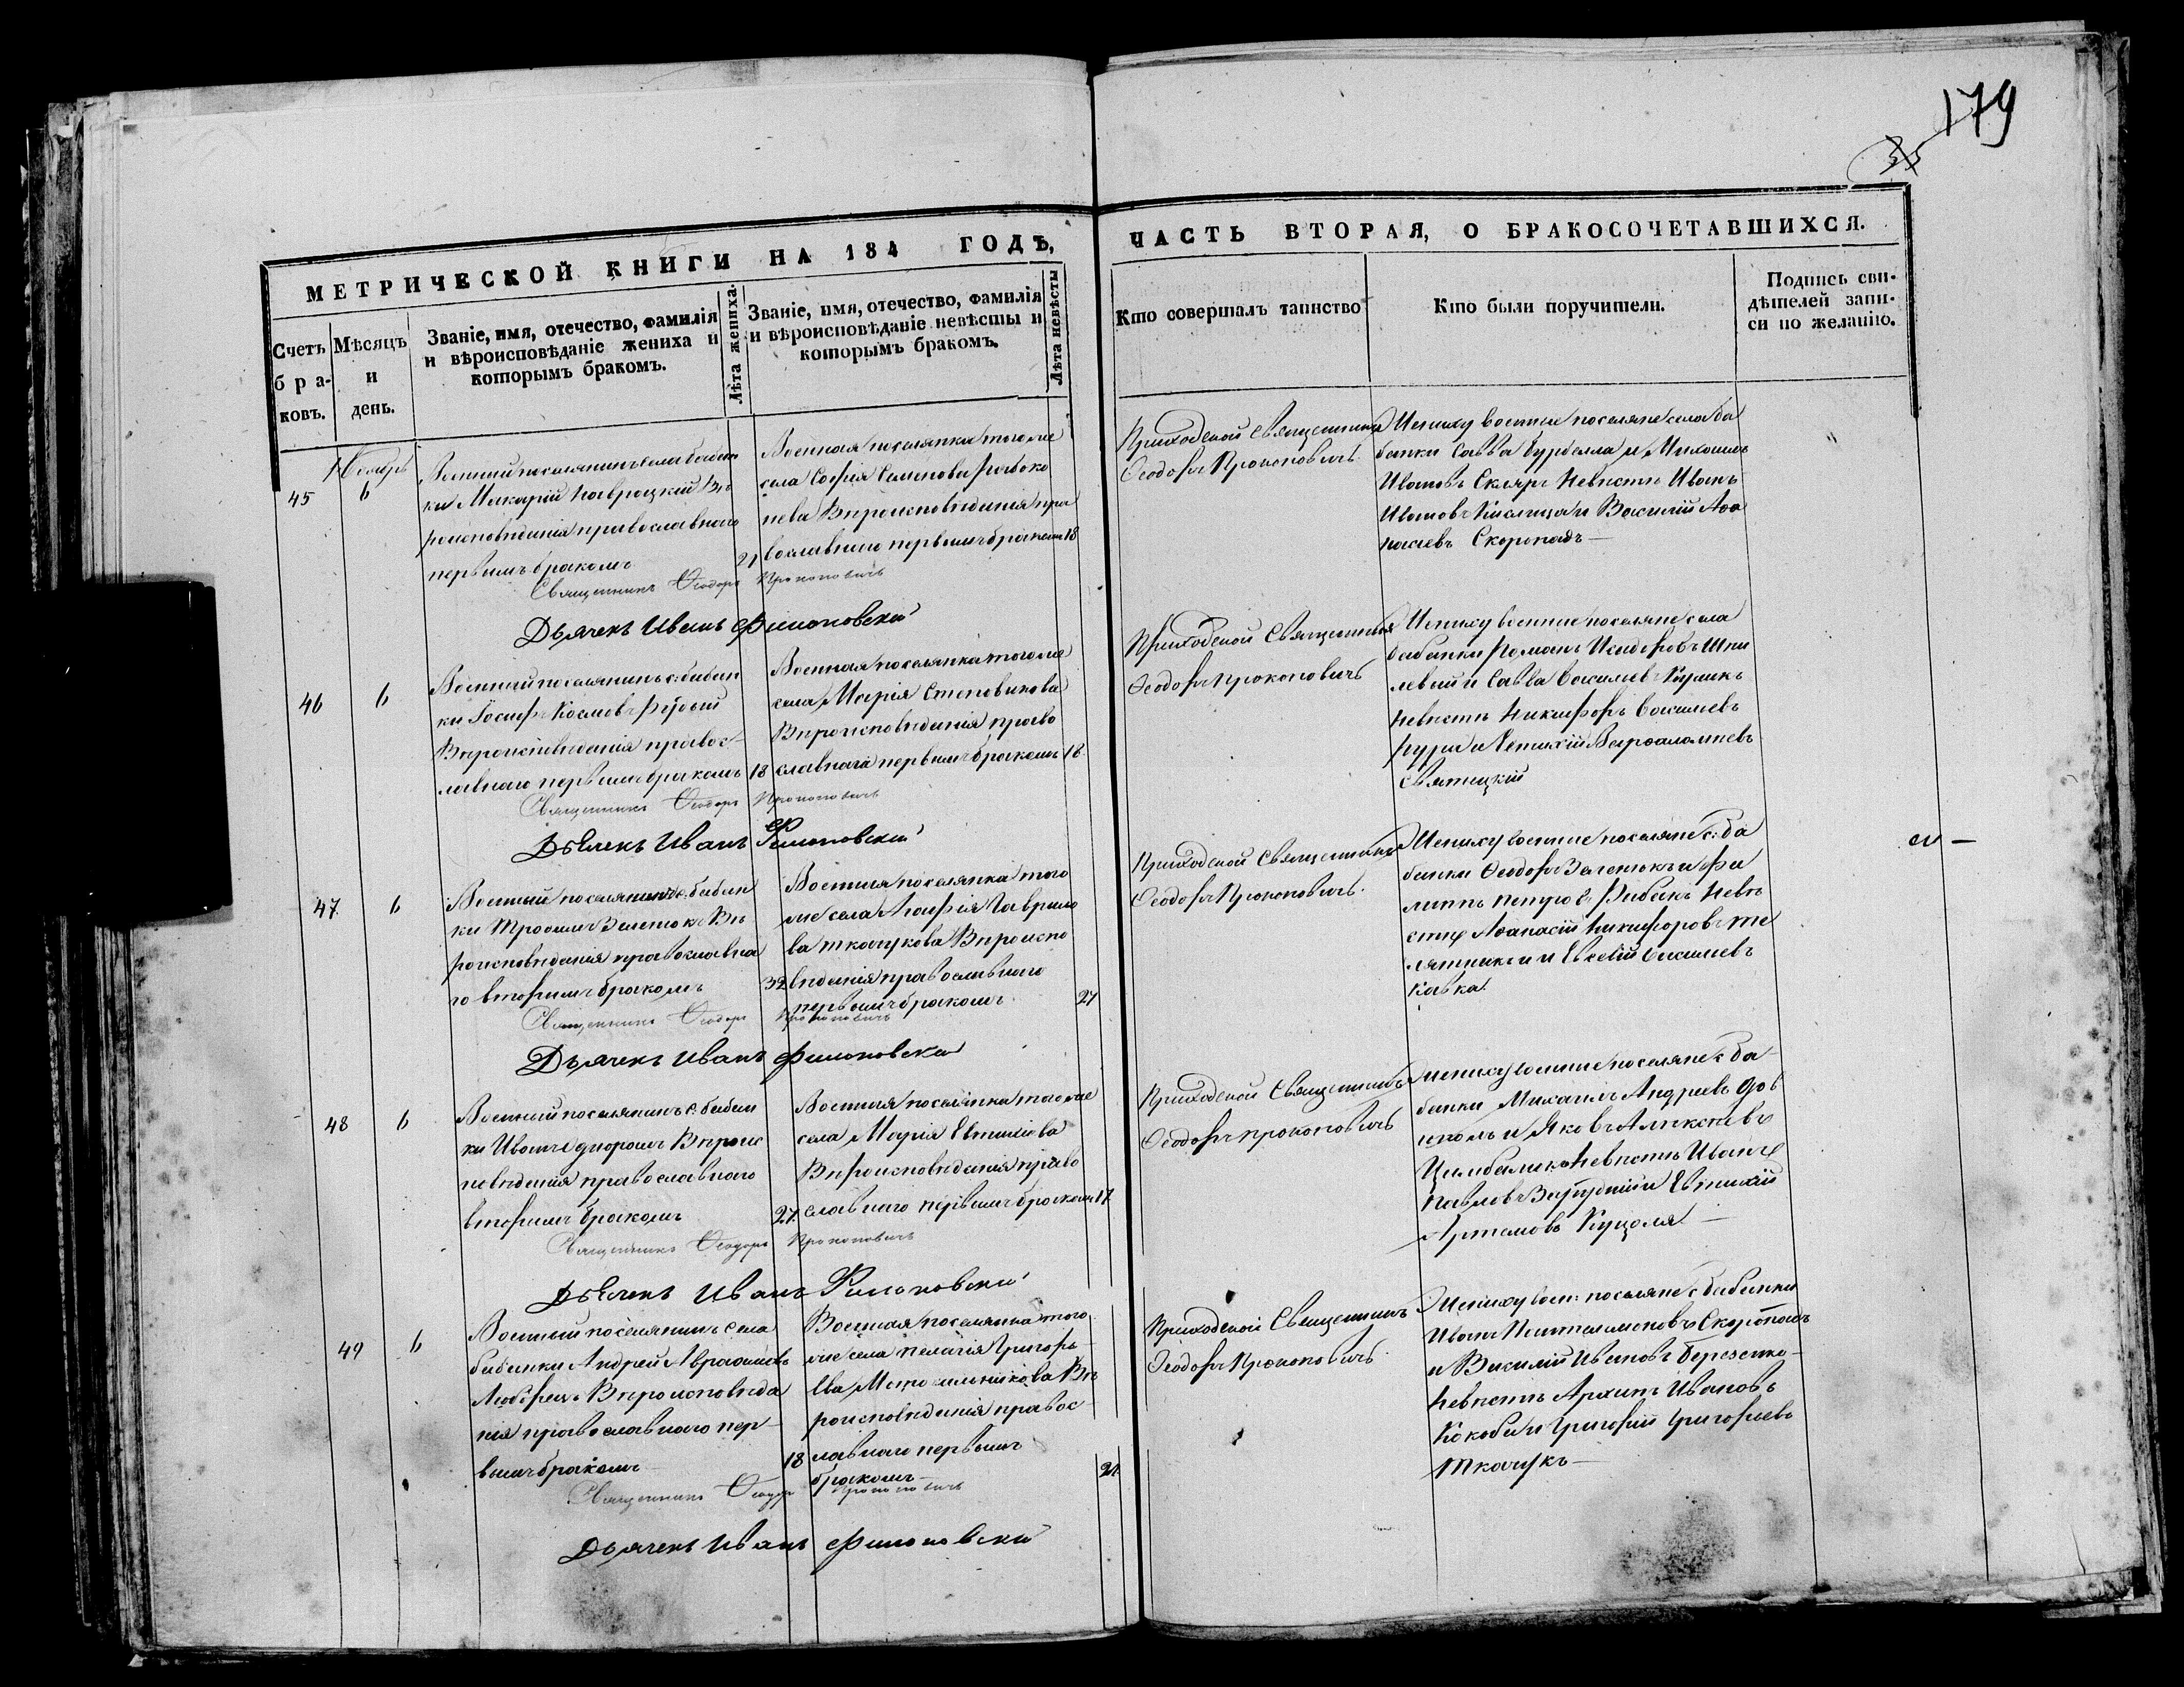 179
35
МЕТРИЧЕСКОЙ КНИГИ НА 184 ГОДЪ,
Счетъ бра-ковъ.
Мѣсяцъ и день.
Званіе, имя, отечество, фамилія
и вѣроисповѣданіе жениха и
которымъ бракомъ.
Лѣта жениха.
Званіе, имя, отечество, фамилія
и вѣроисповѣданіе невѣсты и
которымъ бракомъ.
Лѣта невѣсты
ЧАСТЬ ВТОРАЯ, О БРАКОСОЧЕТАВШИХСЯ.
Кто совершалъ таинство
Кто были поручители.
Подпись сви-
дѣтелей запи-
си по желанію.
45
Ноябрь
6
Военный поселянинъ села Бабан
ки Макарій Навроцкій Вѣ
роисповѣданія православнаго
первымъ бракомъ
21
Военная поселянка тогоже
села Софія Семенова
Вѣроисповѣданія пра
вославнаго первымъ бракомъ
18
Приходской Священникъ
Ѳеодоръ Прокоповичъ
Жениху военные поселяне села Ба
банки Савва Бурделла и
Ивановъ Скляръ Невѣстѣ Иванъ
Ивановъ и Василій Аѳа
насіевъ Скоропадъ
Священникъ Ѳеодоръ Прокоповичъ
Дьячекъ Иванъ Филоновскій
46
6
Военный поселянинъ с: Бабан
ки Іосифъ Космовъ Рудый
Вѣроисповѣданія правос
лавнаго первымъ бракомъ
18
Военная поселянка тогоже
села Марія Степовикова
Вѣроисповѣданія право
славнаго первымъ бракомъ
18
Приходской Священникъ
Ѳеодоръ Прокоповичъ
Жениху военные поселяне села
Бабанки Романъ Исидоровъ Шпи
левый и Савва Василіевъ Кушикъ
Невѣстѣ Никифоръ Василіевъ
и Евтихій Варѳоломіевъ
Святецкій
Священникъ Ѳеодоръ Прокоповичъ
Дьячекъ Иванъ Филоновскій
47
6
Военный поселянинъ с. Бабан
ки Трофимъ Зеленюкъ Вѣ
роисповѣданія православна
го вторымъ бракомъ
32
Военная поселянка того
же села Агафія Гаврило
ва Ткачукова Вѣроиспо
вѣданія православнаго
первымъ бракомъ
27
Приходской Священникъ
Ѳеодоръ Прокоповичъ.
Жениху военные поселяне с: Ба
банки Ѳеодоръ Зеленюкъ и Фи
липпъ Петровъ Рибакъ Невѣ
стѣ Аѳанасій Никифоровъ Те
лятникъ и Евсевій Василіевъ
Кавка.
Священникъ Ѳеодоръ Прокоповичъ
Дьячекъ Иванъ Филоновскій
48
6
Военный поселянинъ с. Бабан
ки Иванъ Вѣроис
повѣданія православнаго
вторымъ бракомъ
27
Военная поселянка тогоже
села Марія Евтихіева
Вѣроисповѣданія право
славнаго первымъ бракомъ
17
Приходской Священникъ
Ѳеодоръ Прокоповичъ
Жениху военные поселяне с Ба
банки Михаилъ Андреевъ Дов
и Яковъ Алексѣевъ
Цимбалюкъ Невѣстѣ Иванъ
Павловъ и Евтихій
Артемовъ Куцоля
Священникъ Ѳеодоръ Прокоповичъ
Дьячекъ Иванъ Филоновскій
49
6
Военный поселянинъ села
Бабанки Андрей Авраамовъ
Вѣроисповѣда
нія православнаго пер
вымъ бракомъ
18
Военная поселянка того
же села Пелагія Григорь
ева Вѣ
роисповѣданія правос
лавнаго первымъ
бракомъ
21
Приходской Священникъ
Ѳеодоръ Прокоповичъ
Жениху воен: поселяне с Бабанки
Иванъ Пантелимоновъ Скоропадъ
и Василій Ивановъ Березенко
Невѣстѣ Архипъ Ивановъ
Кокоба и Григорій Григорьевъ
Ткачукъ
Священникъ Ѳеодоръ Прокоповичъ
Дьячекъ Иванъ Филоновскій